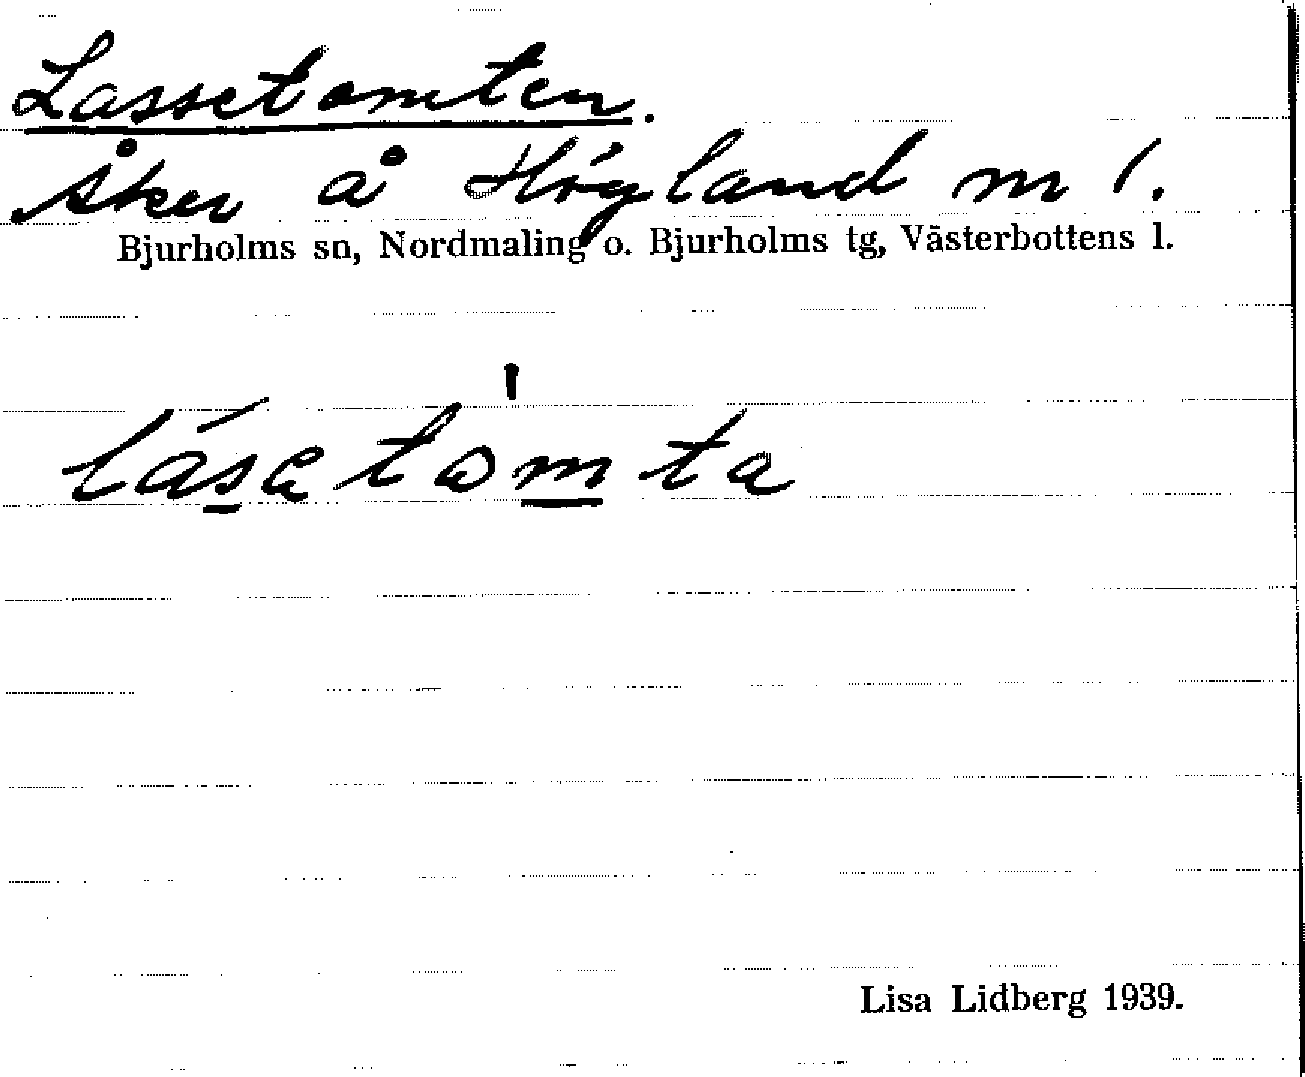 Lassetomten.
åker å Högland m 1.
Bjurholms sn, Nordmaling o. Bjurholms tg, Västerbottens l.
lásetòmta
Lisa Lidberg 1939.